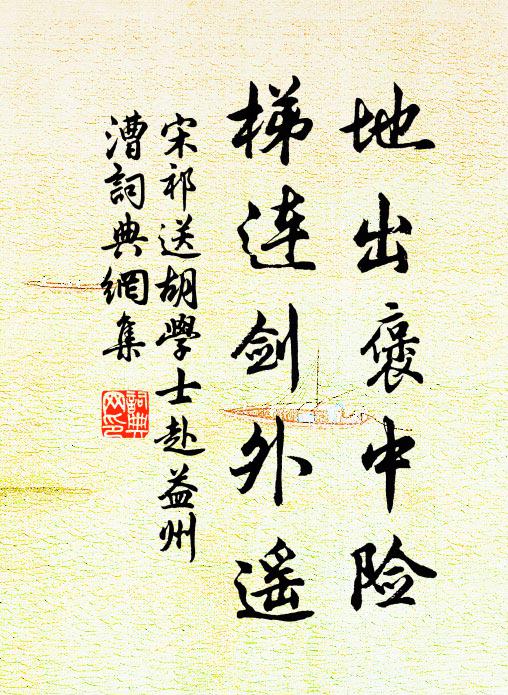 地出褒中险
梯连剑外遥
宋祁送胡學士赴益州
漕詞典網集
詞典
网印